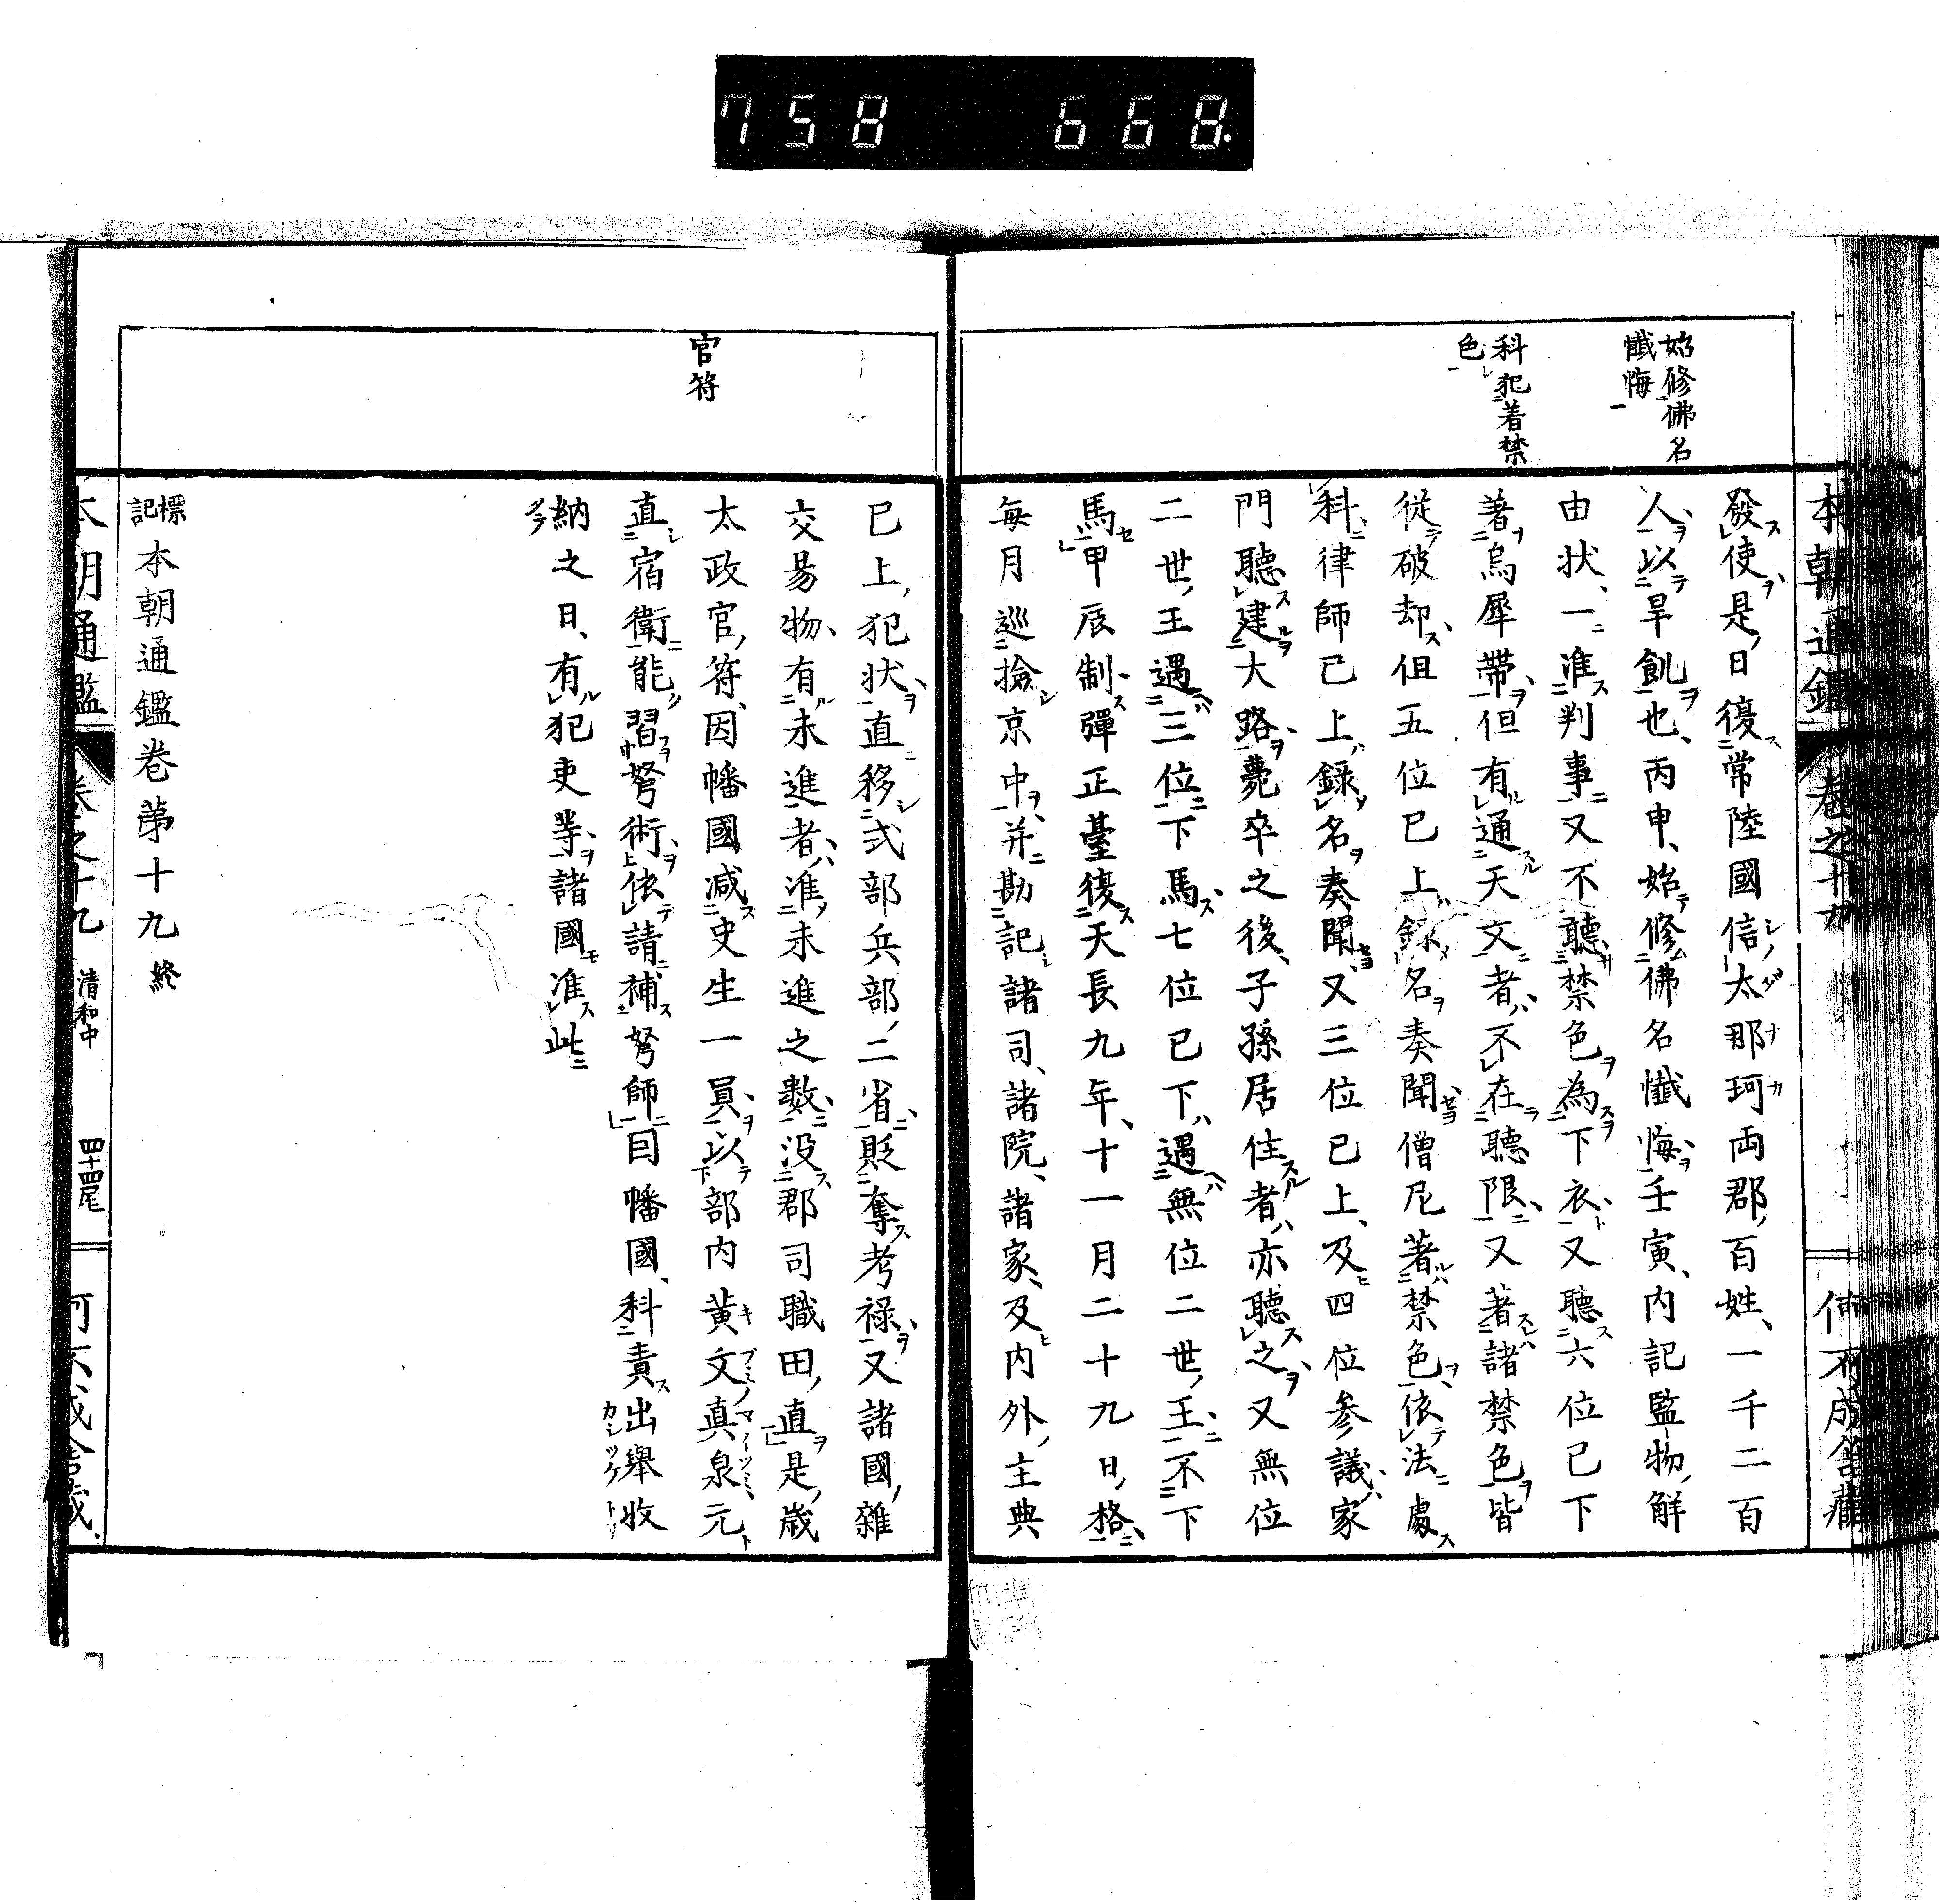 758 668.
本朝通鑑 卷之十九 何不成舎藏
始修佛名
懺悔
科犯着禁
色
發使是日復常陸國信太那珂両郡百姓一千二百
人以旱飢也丙申始修佛名懺悔壬寅内記監物觧
由状一准判事又不聽禁色為下衣又聽六位已下
著烏犀帶但有通天文者不在聽限又著諸禁色皆
従破却但五位已上録名奏聞僧尼著禁色依法處
科律師已上録名奏聞又三位已上及四位参議家
門聽建大路薨卒之後子孫居住者亦聽之又無位
二世王遇三位下馬七位已下遇無位二世王不下
馬甲辰制彈正臺復天長九年十一月二十九日格
毎月巡撿京中并勘記諸司諸院諸家及内外主典
官符
已上犯状直移式部兵部二省貶奪考祿又諸國雜
交易物有未進者准未進之數没郡司職田直是歳
太政官符因幡國减史生一員以部内黄文真泉元
直宿衛能習弩術依請補弩師目幡國科責出舉收
納之日有犯吏等諸國准此
標記 本朝通鑑卷第十九 終
本朝通鑑 卷之十九 清和中 四十四尾 何不成舎藏